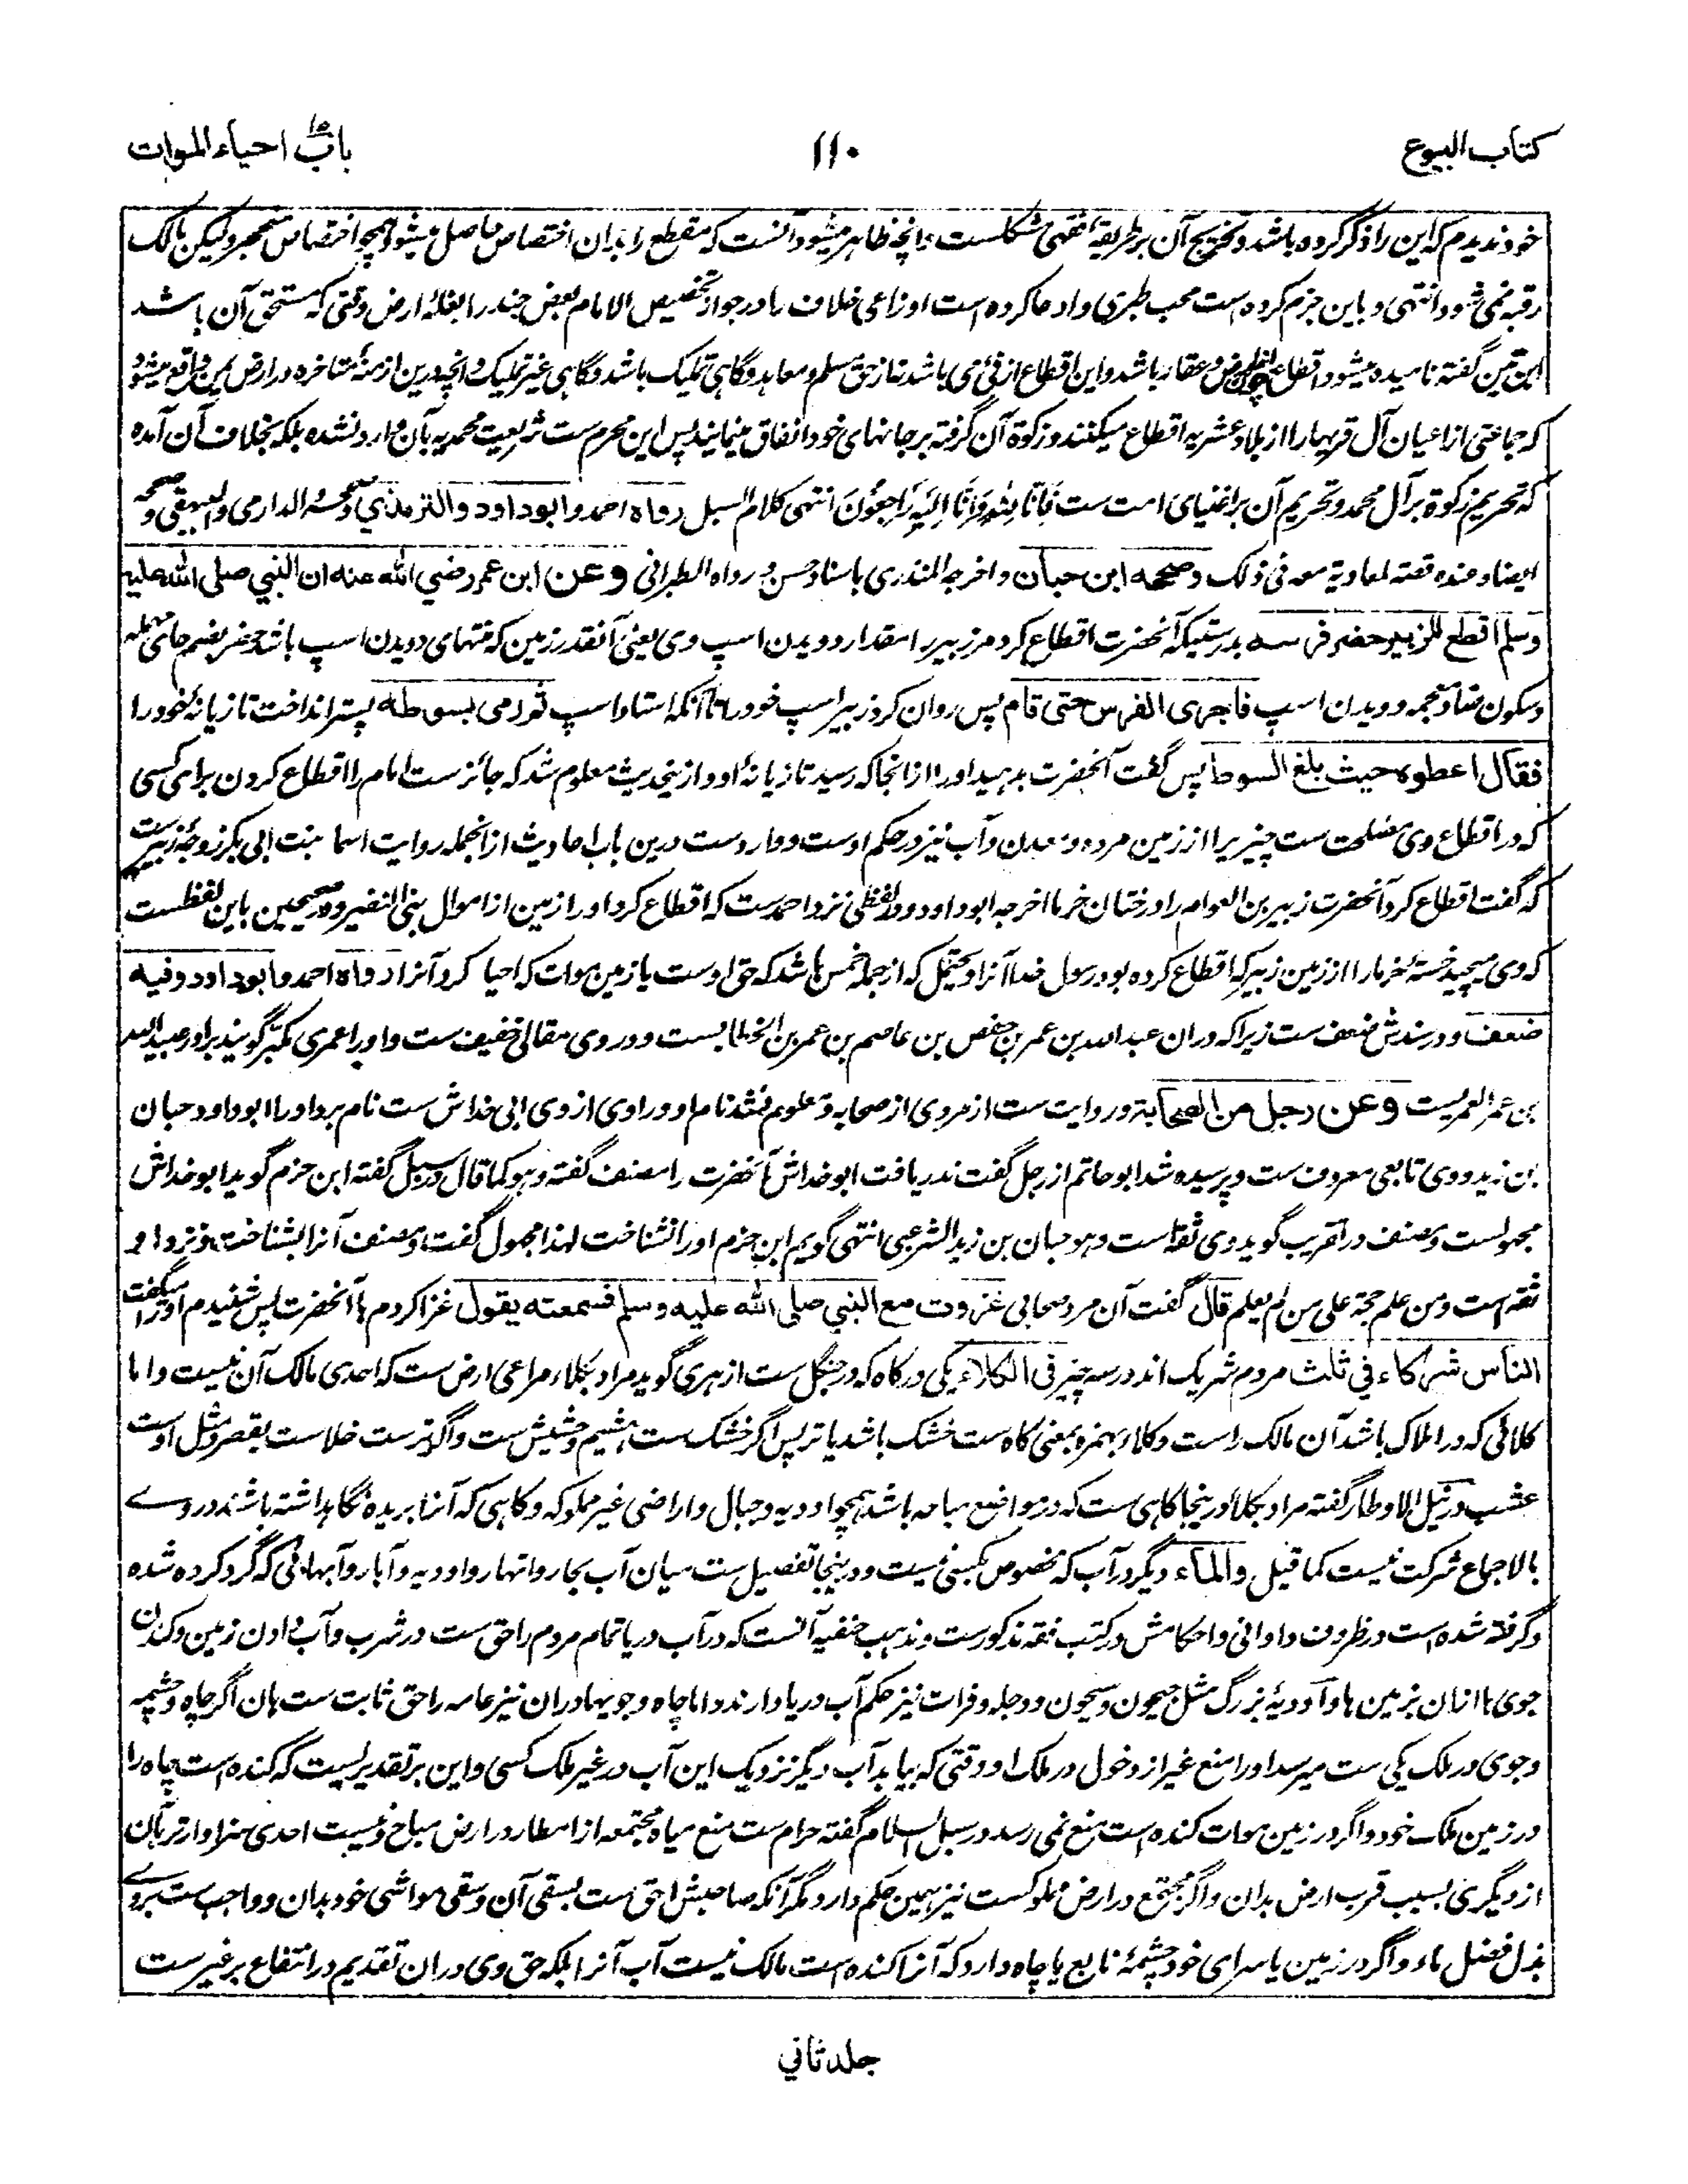 کتاب البیوع
۱۱۰
باب احیاء الموات
خود ندیدم که این را ذکر کرده باشد و تخریج آن بر طریقهٔ فقهی مشکلست و آنچه ظاهر میشود آنست که مقطع را بدان اختصاص حاصل میشود همچو اختصاص متحجر و لیکن مالک
رقبه نمی شود انتهی و باین جزم کرده است محب طبری و ادعا کرده است اوزاعی خلاف را در جواز تخصیص الامام بعض جند را بغلهٔ ارض وقتی که مستحق آن باشد
ابن تین گفته نامیده میشود اقطاع ارض و عقار باشد و این اقطاع از فی می باشد نه از حق مسلم و معاهد و گاهی تملیک باشد و گاهی غیر تملیک و آنچه درین ازمنهٔ متاخره در ارض یمن واقع میشود
که جماعتی از اعیان آل قریه‌ها را از بلاد عشریه اقطاع میکنند و زکوة آن گرفته بر جانهای خود انفاق مینمایند پس این محرم ست شریعت محمدیه بآن وارد نشده بلکه بخلاف آن آمده
که تحریم زکوة بر آل محمد و تحریم آن بر اغنیای امت ست فَإِنَّا لِلّهِ وَإِنَّا إِلَیْهِ رَاجِعُونَ انتهی کلام السبل رواه احمد و ابو داود و الترمذي و حسنه الدارمی و البیهقی و صححه
ایضا و عنده قصته لمعاویة معه فی ذلک و صححه ابن حبان و اخرجه المنذری باسناد حسن و رواه الطبرانی وعن ابن عمر رضي الله عنه ان النبي صلى الله عليه
وسلم اقطع للزبير حضر فرسه بدرستیکه آنحضرت اقطاع کرد مر زبیر را مقدار دویدن اسپ وی یعنی آنقدر زمین که منتهای دویدن اسپ باشد و حضر بضم حای مهمله
و سکون ضاد معجمه دویدن اسپ فاجرى الفرس حتى قام پس روان کرد زبیر اسپ خود را تا آنکه استاد اسپ ثم رمی بسوطه پستر انداخت تازیانهٔ خود را
فقال اعطوه حیث بلغ السوط پس گفت آنحضرت بدهید او را از انجا که رسید تازیانهٔ او و ازین حدیث معلوم شد که جائزست امام را اقطاع کردن برای کسی
که در اقطاع وی مصلحت ست چیزی را از زمین مرده و معدن و آب نیز در حکم اوست و وارد ست درین باب احادیث از انجمله روایت اسما بنت ابی بکر زوجهٔ زبیرست
که گفت اقطاع کرد آنحضرت زبیر بن العوام را درختان خرما اخرجه ابو داود و لفظی نزد احمدست که اقطاع کرد او را زمین از اموال بنی النضیر و در صحیحین باین لفظست
که وی میچید خستهٔ خرما را از زمین زبیر که اقطاع کرده بود رسول خدا آنرا و یحتمل که از جمله خمس باشد که حق اوست یا زمین موات که احیا کرد آنرا رواه احمد و ابو داود و فیه
ضعف و در سندش ضعف ست زیرا که دران عبد الله بن عمر بن حفص بن عاصم بن عمر بن الخطابست و در وی مقالی خفیف ست و او را عمری مکبر گویند برادر عبید الله
بن عمر العمریست وعن رجل من الصحابة و روایت ست از مردی از صحابه و معلوم نشد نام او و راوی از وی ابی خداش ست نام برد او را ابو داود حبان
بن زید و وی تابعی معروف ست و پرسیده شد ابو حاتم از رجل گفت ندریافت ابو خداش آنحضرت را مصنف گفته و هو کما قال در سبل گفته ابن حزم گوید ابو خداش
مجهولست و مصنف در تقریب گوید وی ثقه است و هو حبان بن زید الشرعبی انتهی گویم ابن حزم او را نشناخت لهذا مجهول گفت و مصنف آنرا بشناخت و نزد او
ثقه است و من علم حجة على من لم یعلم قال گفت آن مرد صحابی غزوت مع النبي صلى الله عليه وسلم فسمعته یقول غزا کردم با آنحضرت پس شنیدم او را میگفت
الناس شرکاء في ثلث مردم شریک اند در سه چیز فی الکلاء یکی در کاه که در جنگل ست ازهری گوید مراد بکلاء مراعی ارض ست که احدی مالک آن نیست و اما
کلائی که در املاک باشد آن مالک راست و کلاء بهمزه بمعنی کاه ست خشک باشد یا تر پس اگر خشک ست هشیم و حشیش ست و اگر ترست خلاست بقصر و مثل اوست
عشب در نیل الاوطار گفته مراد بکلأ درینجا کاهی ست که در مواضع مباحه باشد همچو اودیه و جبال و اراضی غیر مملوکه و کاهی که آنرا بریده نگاهداشته باشند در وے
بالاجماع شرکت نیست کما قیل والماء دیگر در آب که مخصوص بکسی نیست و درینجا تفصیل ست میان آب بحار و انهار و اودیه و آبار و آبهائی که گرد کرده شده
و گرفته شده است در ظروف و اوانی و احکامش در کتب فقه مذکورست و مذهب حنفیه آنست که در آب دریا تمام مردم را حق ست در شرب و آب دادن زمین و کندن
جوی ها ازان بزمین ها و آودیهٔ بزرگ مثل جیحون و سیحون و دجله و فرات نیز حکم آب دریا دارند و اما چاه و جویها دران نیز عامه را حق ثابت ست هان اگر چاه و چشمه
و جوی در ملک یکی ست میرسد او را منع غیر از دخول در ملک او وقتی که بیابد آب دیگر نزدیک این آب در غیر ملک کسی و این بر تقدیریست که کنده است چاه را
در زمین ملک خود و اگر در زمین موات کنده است منع نمی رسد در سبل السلام گفته حرام ست منع میاه مجتمعه از امطار در ارض مباح و نیست احدی سزاوارتر بآن
از دیگری بسبب قرب ارض بدان و اگر مجتمع در ارض مملوکست نیز همین حکم دارد مگر آنکه صاحبش احق ست بسقی آن و سقی مواشی خود بدان و واجب ست بروے
بذل فضل ماء و اگر در زمین یا سرای خود چشمهٔ نابع یا چاه دارد که آنرا کنده است مالک نیست آب آنرا بلکه حق وی دران تقدیم در انتفاع بر غیرست
جلد ثاني